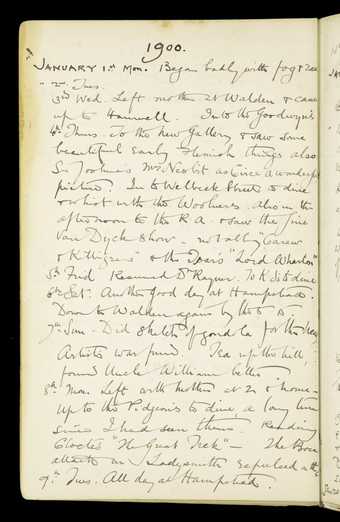 1900.
JANUARY 1st Mon. Began badly with fog &
" 2nd Tues.
3rd Wed. Left mother at Walden & came
up to Hanwell. In to the Goodwyn's
4th Thurs. To the New Gallery & saw some
beautiful Early Flemish things also
Sir Joshua's Mrs Nesbit as Circe a wonderful
picture. In to Welbeck Street to dine
& whist with the Woolners. Also in the
afternoon to the R A. & saw the fine
Van Dyck Show - notably "Carew
& Killigrew" & the "Lord Wharton"
5th Frid Resumed Dr Rayner. To K to dine
6th Sat. Another good day at Hampstead.
Down to Walden again by the 5
7th Sun. Did sketch of for the New
Artists War fund. Tea up the hill,
found Uncle William better
8th Mon. Left with mother at 2 & home -
up to the Pidgeons to dine a long time
since I had seen them. Reading
"The Great Trek" - The Boer
attack on Ladysmith repulsed on the
9th Tues. All day at Hampstead.